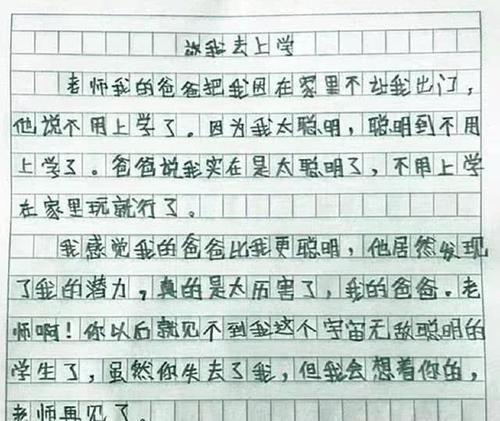 放我去上学
老师我的爸爸把我困在家里不让我出门，
他说不用上学了。因为我太聪明，聪明到不用
上学了。爸爸说我实在是太聪明了，不用上学
在家里玩就行了。
我感觉我的爸爸比我更聪明，他居然发现
了我的潜力，真的是太厉害了，我的爸爸。老
师啊！你以后就见不到我这个宇宙无敌聪明的
学生了，虽然你失去了我，但我会想着你的，
老师再见了。